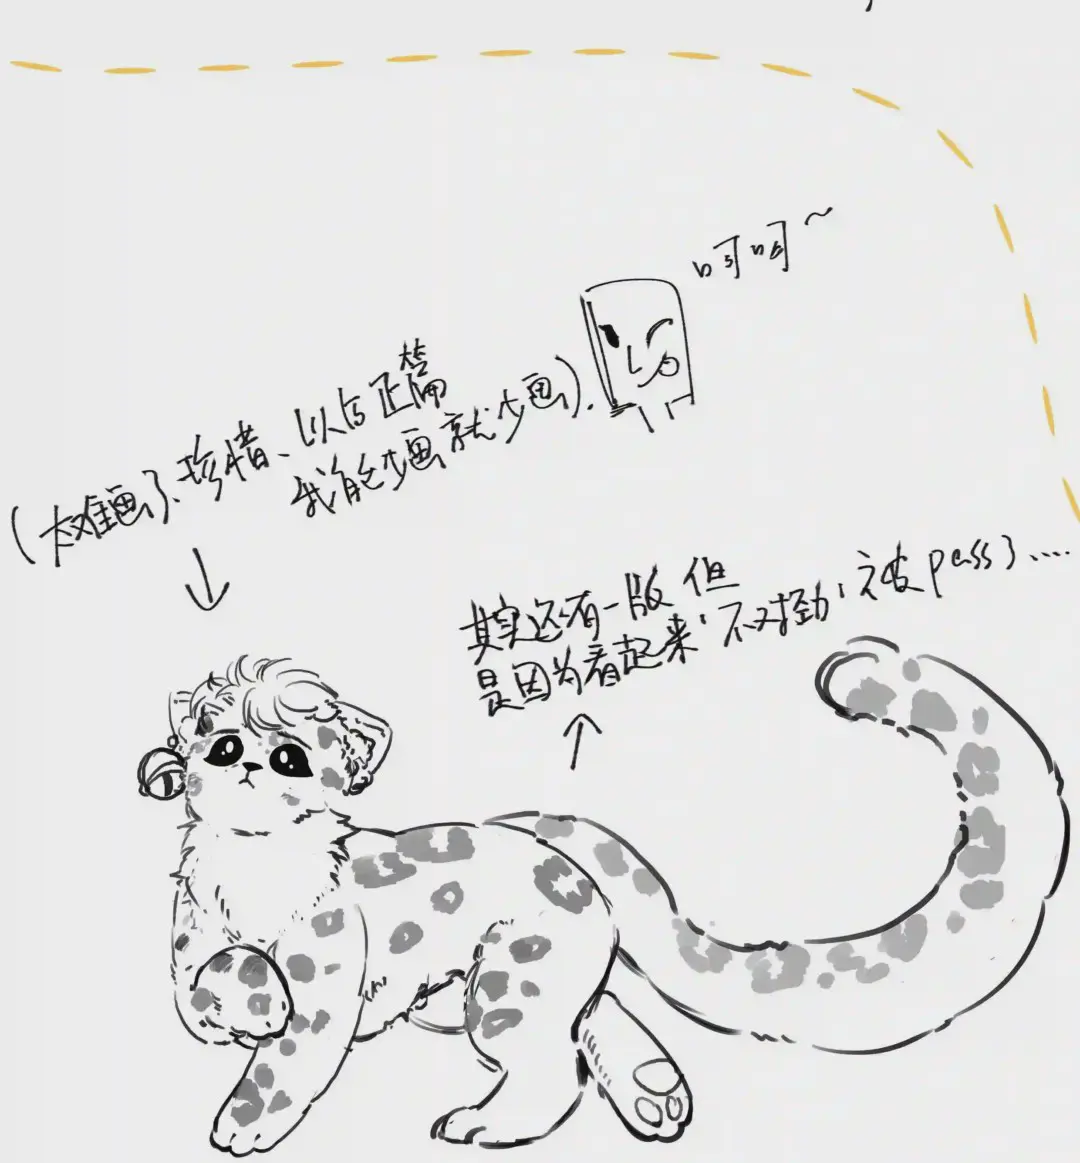 呵呵~
(太难画了、珍惜、以后正篇
我能少画就少画).
其实还有一版 但
是因为看起来'不对劲'被pass了....